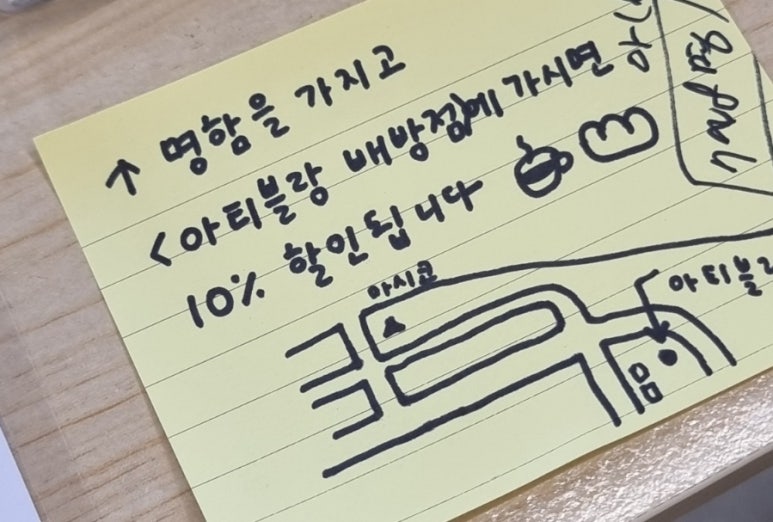 ↑ 명함을 가지고
<아티블랑 배방점에 가시면
10% 할인됩니다
아시코
아티블